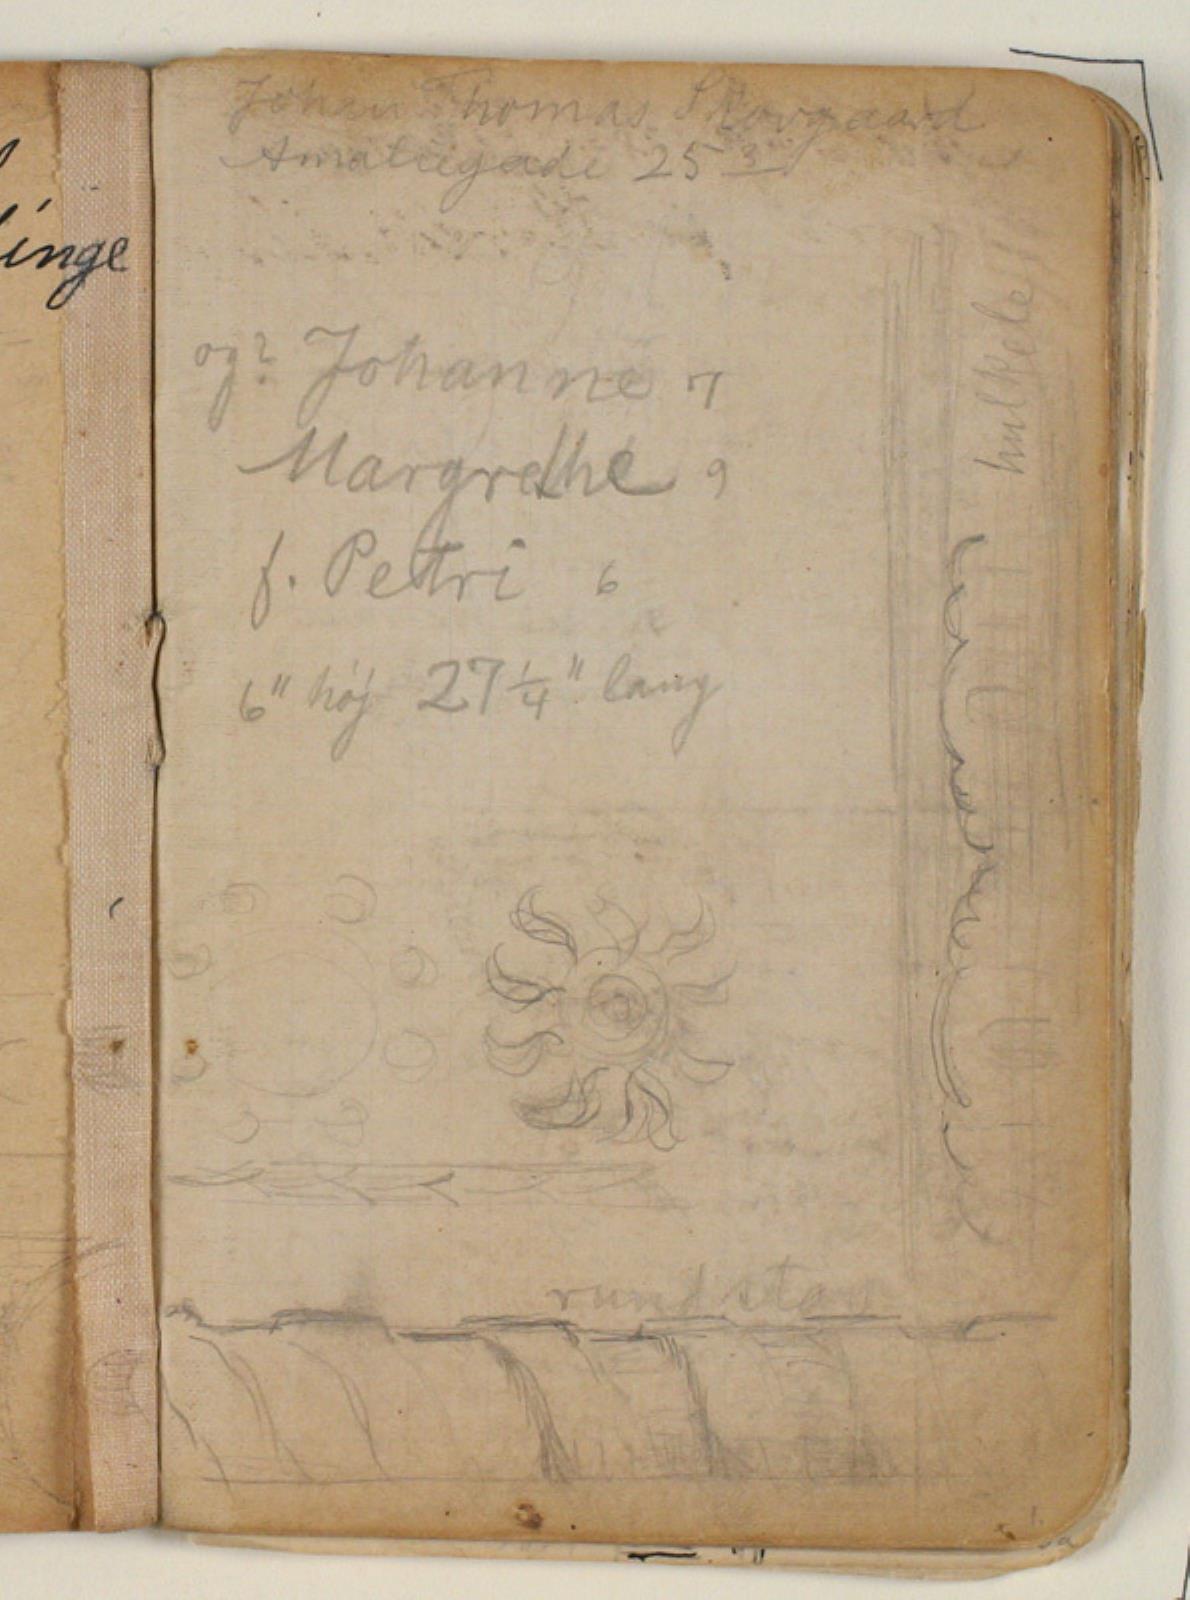 Johan Thomas Skovgaard
Amaliegade 25 3
og? Johanne 7
Margrethe 9
f. Petri 6
6" høj 27 1/4" lang
hulkehl
rundstav
inge